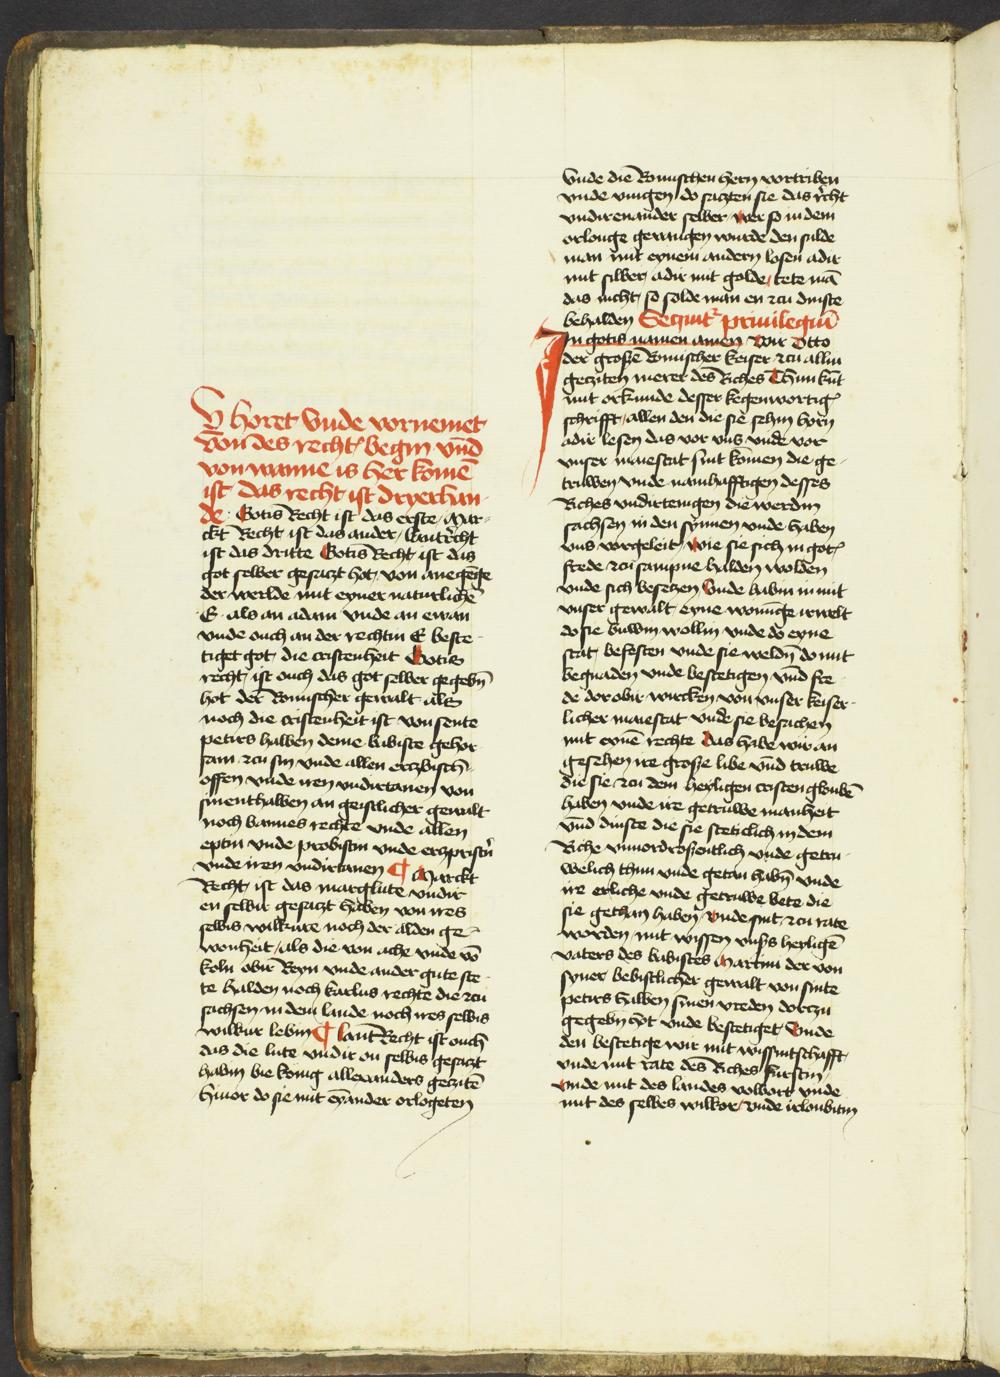 V horet vnde vornemet
von des recht begin vnd
von wanne is her komē
ist das recht ist dryerhan
de · Gotis Recht ist das erste / Mar
ckt Recht ist das ander / lantrecht
ist das dritte Gotis Recht ist das
got selber gesaczt hot / von anegēge
der werlde mit eyner naturlichē
E · als an adam vnde an ewan
vnde ouch an der rechtin E beste
tiget got / die cristenheit Gotis
recht / ist ouch das got selber gegebn̄
hot der Romischer gewalt als
noch die cristenheit ist von sente
petirs halben deme babiste gehor
sam · zcu sin vnde allen erczbisch
offen vnde iren vndirtanen von
sinenthalben an geistlicher gewalt
noch bannes rechte vnde allen
eptin vnde probistin vnde erczpristn̄
vnde iren vndirtanen ¶ Marckt
Recht / ist das margklute vndir
en selbir gesaczt haben von ires
selbis wilkure noch der alden ge
wonheit / als die von ache vnde vō
koln obir Reyn vnde ander gute ste
te halden noch karlus rechte die zcu
sachsen in dem lande noch ires selbis
wilkur lebin ¶ lant Recht ist ouch
das die lute vndir on selbis gesaczt
habin bie konig allexanders geczitē
hiuor do sie mit enander orlogeten
vnde die Romischen hern vortriben
vnde vingen / do saczten sie das recht
vndirenander selber / wer so in dem
orlouge gewangen wurde den sulde
man mit eynem andern losen adir
mit silber / adir mit golde / tete mā
das nicht / so solde man en zcu dinste
behalden Sequitr priuilegiū
In gotis namen amen Wir Otto
der große Romischer keiser · zcu allin
geziten merer des Riches Thun kūt
mit orkunde desser kegenwortig
schrifft / allen den die sie sehin horn
adir lesen das vor vns vnde vor
vnser maiestat sint komen die ge
truwen vnde namhafftigen desses
Riches vndirtenigen die werdin
sachsen in den synnen vnde haben
vns vorgeleit / wie sie sich in got
frede · zcu sampne halden wolden
vnde sich beseczen / Vnde habin in mit
vnser gewalt eyne wonunge irwelt
do sie buwin wollin vnde do eyne
stat / befesten vnde sie weldn̄ do mit
begnaden vnde bestetigen / vnd fre
de dor obir wurcken von vnser keiser
licher maiestat vnde sie besachen
mit eynē rechte Das habe wir an
gesehen ire große libe vnd truwe
die sie zcu dem heyligen cristen gloubē
haben vnde ire getruwe manheit
vnd dinste die sie steticlich in dem
Riche vnuordroßentlich vnde getru
welich thun vnde getan habn̄ vnde
ire erliche vnde getruwe bete die
sie gethan haben / Vnde sint · zcu rate
worden / mit wissen vnß heyligē
vaters des babistes Martini der von
syner bebistlicher gewalt von sinte
petirs halben sinen vreden dorczu
gegebn̄ hot vnde bestetiget Vnde
den bestetige wir mit wissintschafft
vnde mit rate des Riches fursten
vnde mit des landes volbort vnde
mit des selbes wilkor / vnde irloubitin